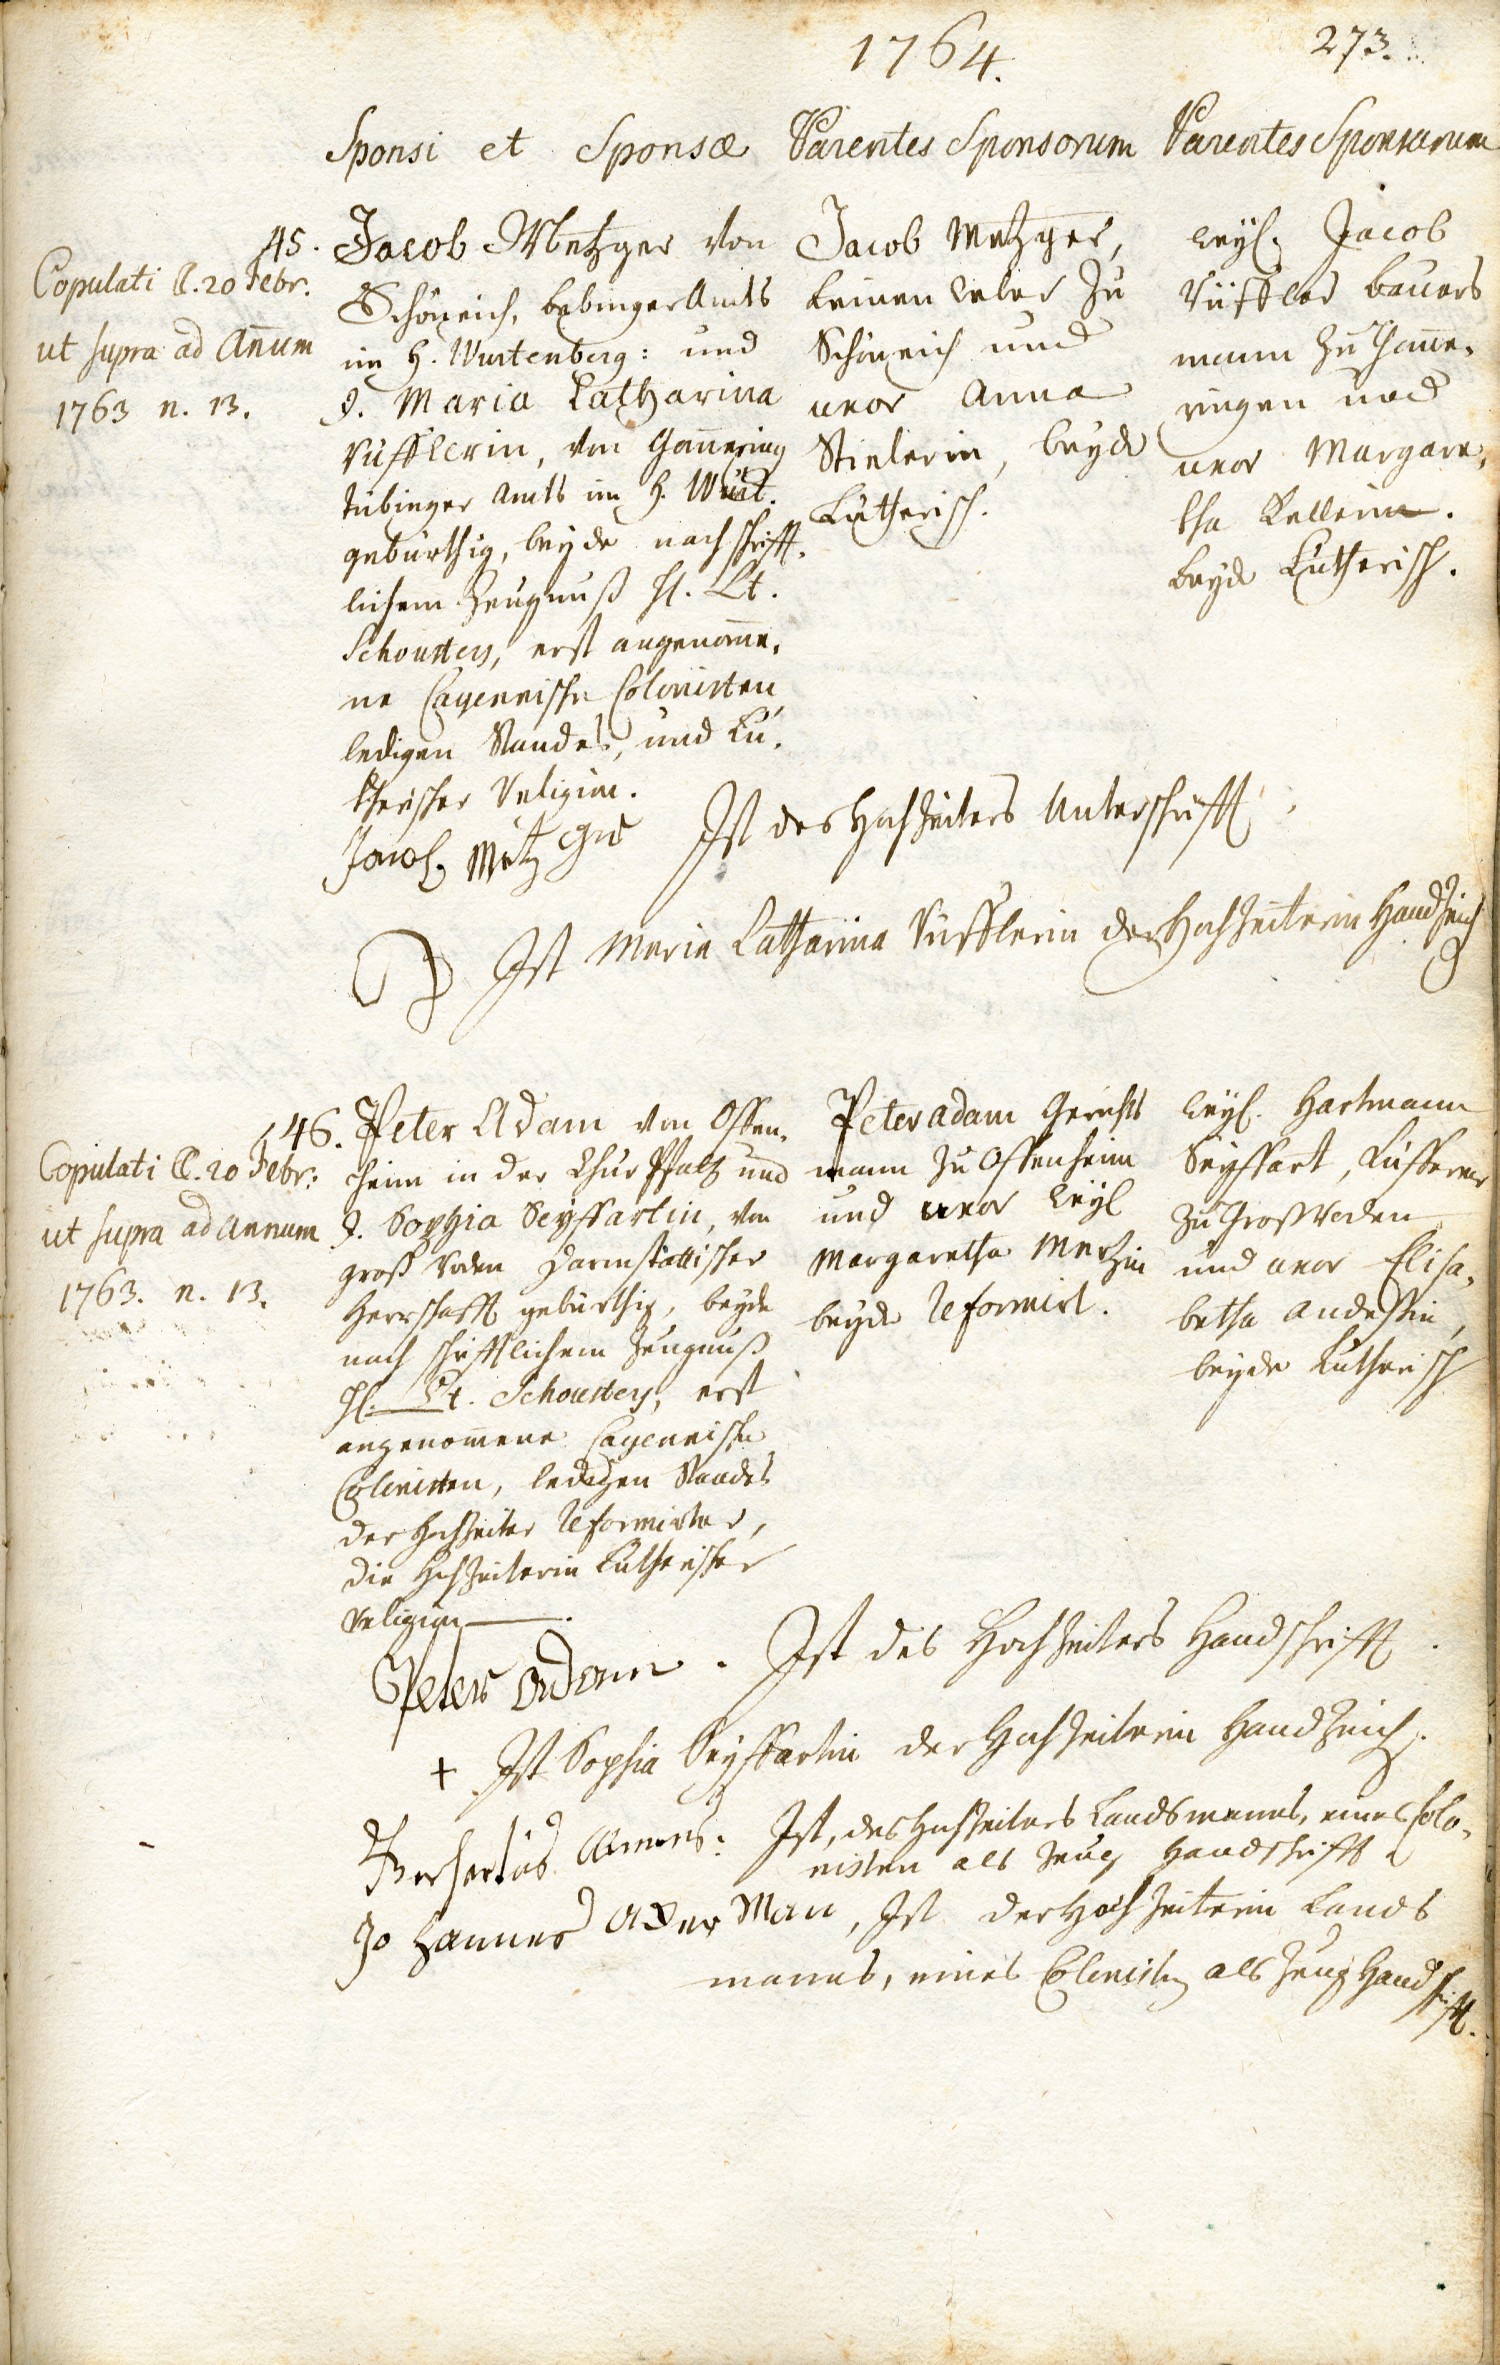 1764.
273.
Sponsi et Sponsæ
Parentes Sponsorum
Parentes Sponsarum
45.
Copulati d. 20 Febr.
ut supra ad Añum
1763 n. 13.
Jacob Metzger von
Schöneich, bebinger Amts
im H. Wurtenberg: und
J. Maria Catharina
Rüfflerin, von Gom̃ering
Tübinger Amts im H. Würt.
gebürthig, beyde nach schrifft-
lichem Zeugnuß H. Lt.
Schousters, erst angenom̃e-
ne Cayennische Colonisten
ledigen Standes, und Lu-
therischer Religion.
Jacob Metzger, 
Leinenweber zu
Schöneich und
uxor Anna
Stielerin, beyde
Lutherisch.
weyl. Jacob
Rüffler Bauers
mann zu Gom̃e-
ringen und
uxor Margare-
tha Kellerin.
beyde Lutherisch.
Jacob Metzger Ist des Hochzeiters Unterschrifft
Ist Maria Catharina Rüfflerin der Hochzeiterin Handzeich
46.
Copulati d. 20 Febr:
ut supra ad Annum
1763. n. 13.
Peter Adam von Offen-
heim in der Chur Pfaltz und
J. Sophia Seyffartin, von
groß Roden Darmstättischer
Herrschafft gebürthig, beyde
nach schrifftlichem Zeugnuß
H. Lt. Schousters, erst
angenom̃ene Cayennische
Colonisten, ledigen Standes
der Hochzeiter Reformirter,
die Hochzeiterin Lutherischer
Religion.
Peter Adam Gerichts
mann zu Offenheim
und uxor weyl
Margaretha Metzin
beyde Reformirt.
weyl. Hartmann
Seyffart,
zu Groß Roden
und uxor Elisa-
betha Andessin,
beyde Lutherisch
Peter Adam. Ist des Hochzeiters Handschrifft.
+ Ist Sophia Seyffartin der Hochzeiterin Handzeich.
Ist, des Hochzeiters Landsmanns, eines Colo-
nisten als Zeug Handschrifft
Johannes Acker Man, Ist der Hochzeiterin Lands
manns, eines Colonisten als Zeug Handschrifft.